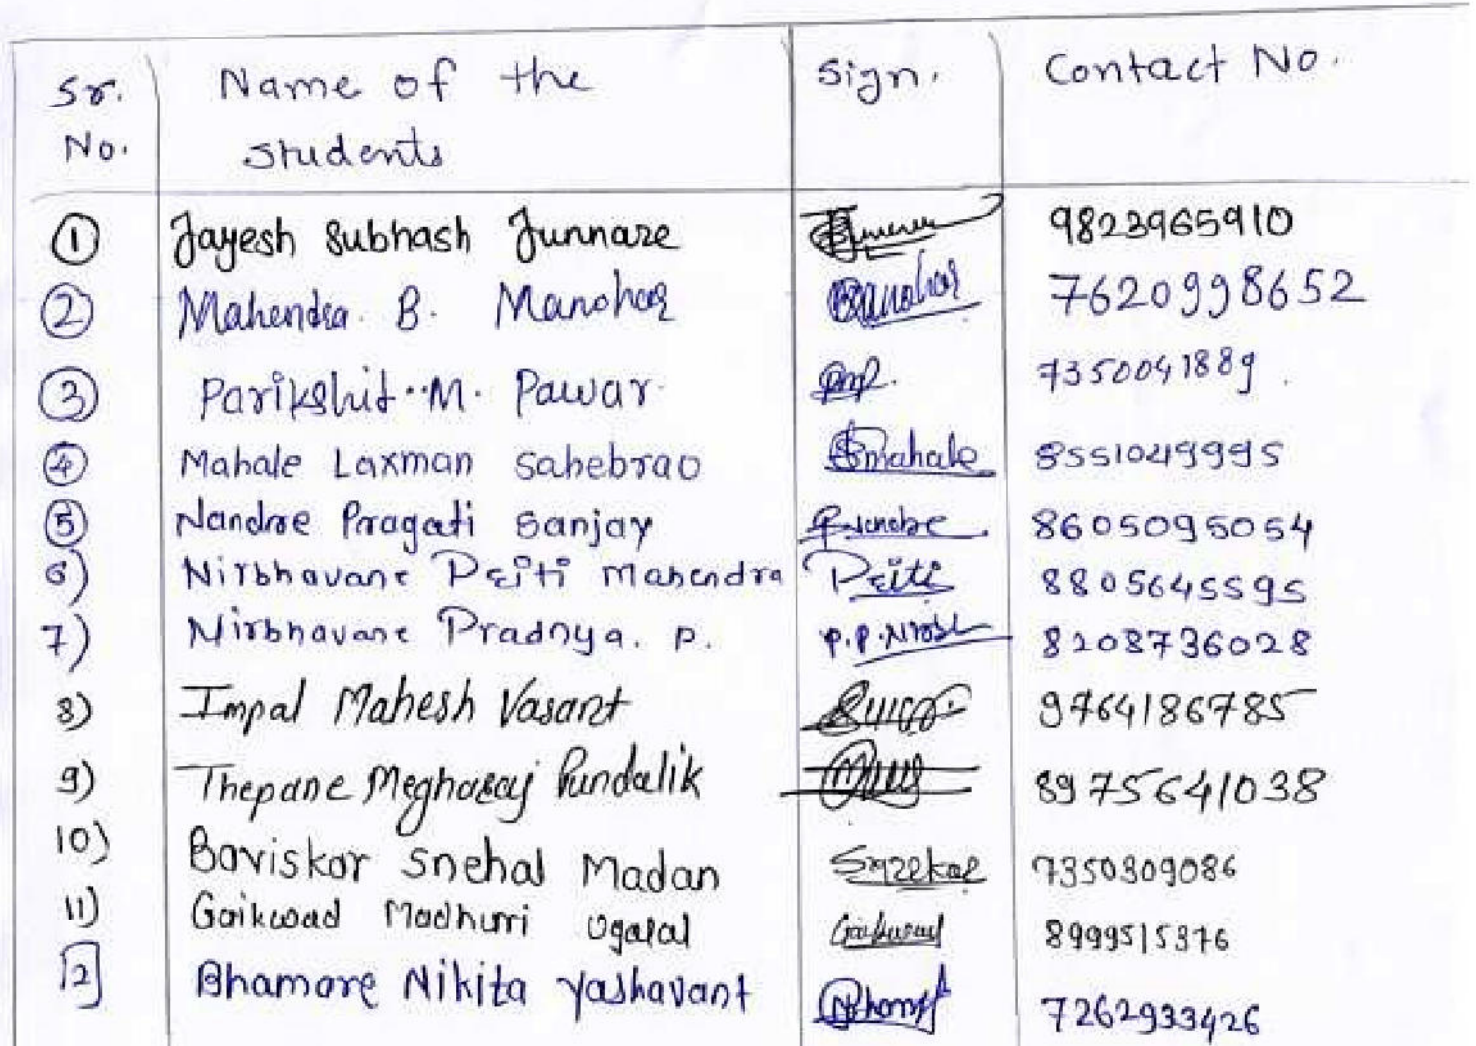 Sr. No. Name of the students Sign. Contact No.
1 Jayesh Subhash Junnare 9823965910
2 Mahendra. B. Manohar Manohar 7620998652
3 Parikshit.. M. Pawar. 7350041889.
4 Mahale Laxman Sahebrao Smahale 8551049995
5 Nandre Pragati Sanjay 8605095054
6) Nirbhavane Priti Mahendra Priti 8805645595
7) Nirbhavane Pradnya. P. P.P.Nirbh 8208736028
8) Impal Mahesh Vasant 9764186785
9) Thepane Megharaj Pundalik 8975641038
10) Baviskar Snehal Madan 7350309086
11) Gaikwad Madhuri Ugalal Gaikwad 8999515376
12 Bhamare Nikita Yashavant 7262933426